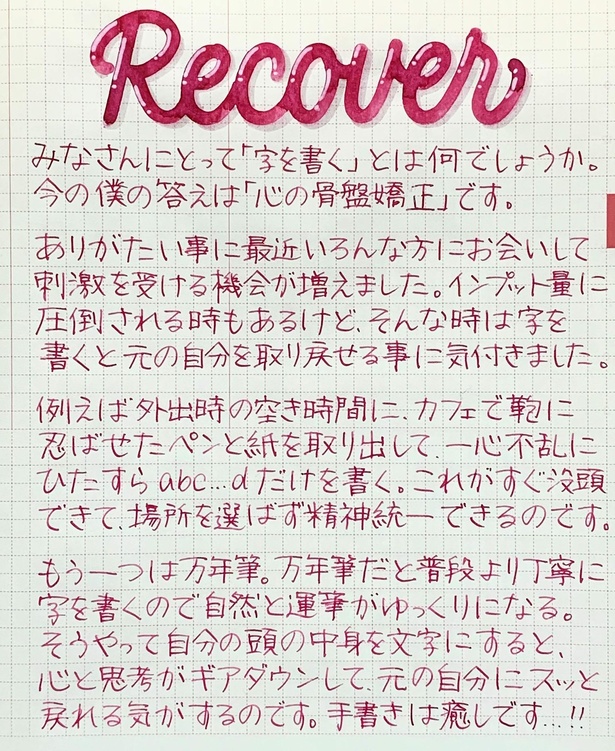 Recover
みなさんにとって「字を書く」とは何でしょうか。
今の僕の答えは「心の骨盤矯正」です。
ありがたい事に最近いろんな方にお会いして
刺激を受ける機会が増えました。インプット量に
圧倒される時もあるけど、そんな時は字を
書くと元の自分を取り戻せる事に気付きました。
例えば外出時の空き時間に、カフェで鞄に
忍ばせたペンと紙を取り出して、一心不乱に
ひたすらabc...dだけを書く。これがすぐ没頭
できて、場所を選ばず精神統一できるのです。
もう一つは万年筆。万年筆だと普段より丁寧に
字を書くので自然と運筆がゆっくりになる。
そうやって自分の頭の中身を文字にすると、
心と思考がギアダウンして、元の自分にスッと
戻れる気がするのです。手書きは癒しです...!!